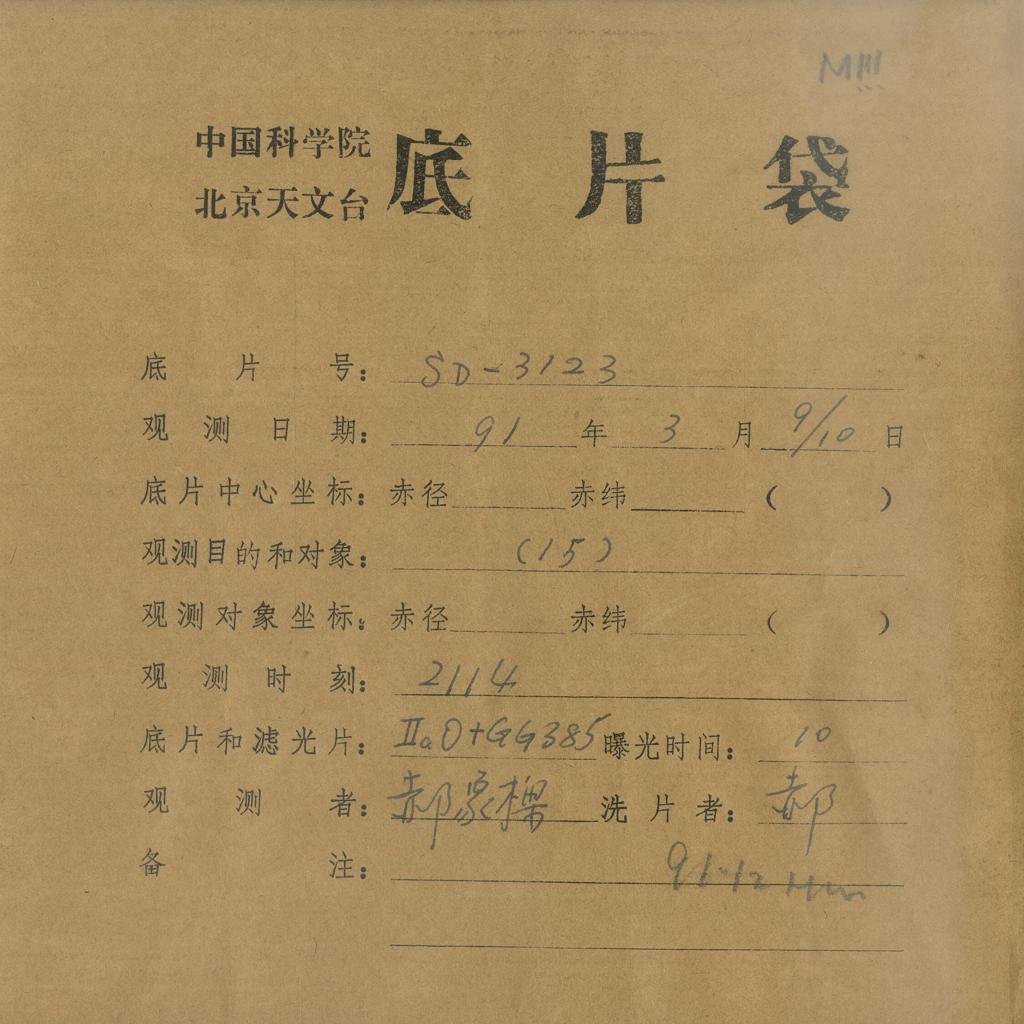 M
中国科学院
北京天文台
底片袋
底片号: SD-3123
观测日期: 91年3月9/10日
底片中心坐标: 赤径 赤纬 ( )
观测目的和对象: (15)
观测对象坐标: 赤径 赤纬 ( )
观测时刻: 2114
底片和滤光片: IIaO+GG385 曝光时间: 10
观测者: 郝象樑 洗片者: 郝
备注:
91.12